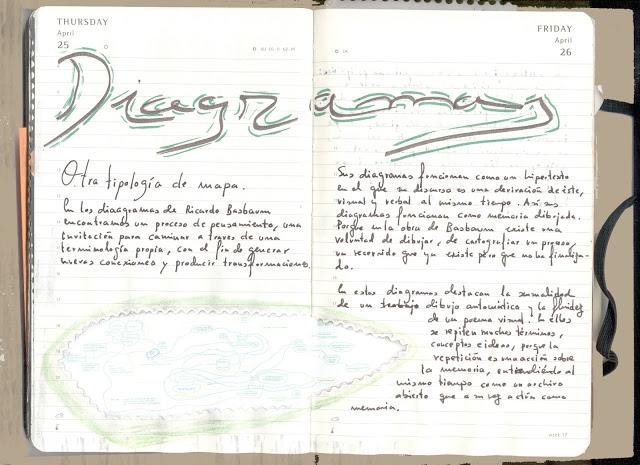 THURSDAY
April
25
FRIDAY
April
26
Diagramas
Otra tipología de mapa.
En los diagramas de Ricardo Basbaum
encontramos un proceso de pensamiento, una
invitación para caminar a través de una
terminología propia, con el fin de generar
nuevas conexiones y producir transformaciones.
Sus diagramas funcionan como un hipertexto
en el que su discurso es una derivación de éste,
visual y verbal al mismo tiempo. Así sus
diagramas funcionan como memoria dibujada.
Porque en la obra de Basbaum existe una
voluntad de dibujar, de cartografiar un proceso,
un recorrido que ya existe pero que no ha finaliza-
do.
En estos diagramas destacan la
de un trabajo dibujo automático y la fluidez
de un poema visual. En ellos
se repiten muchos términos,
conceptos e ideas, porque la
repetición es una acción sobre
la memoria, entendiendo al
mismo tiempo como un archivo
abierto que a su vez actúa como
memoria.
week 17